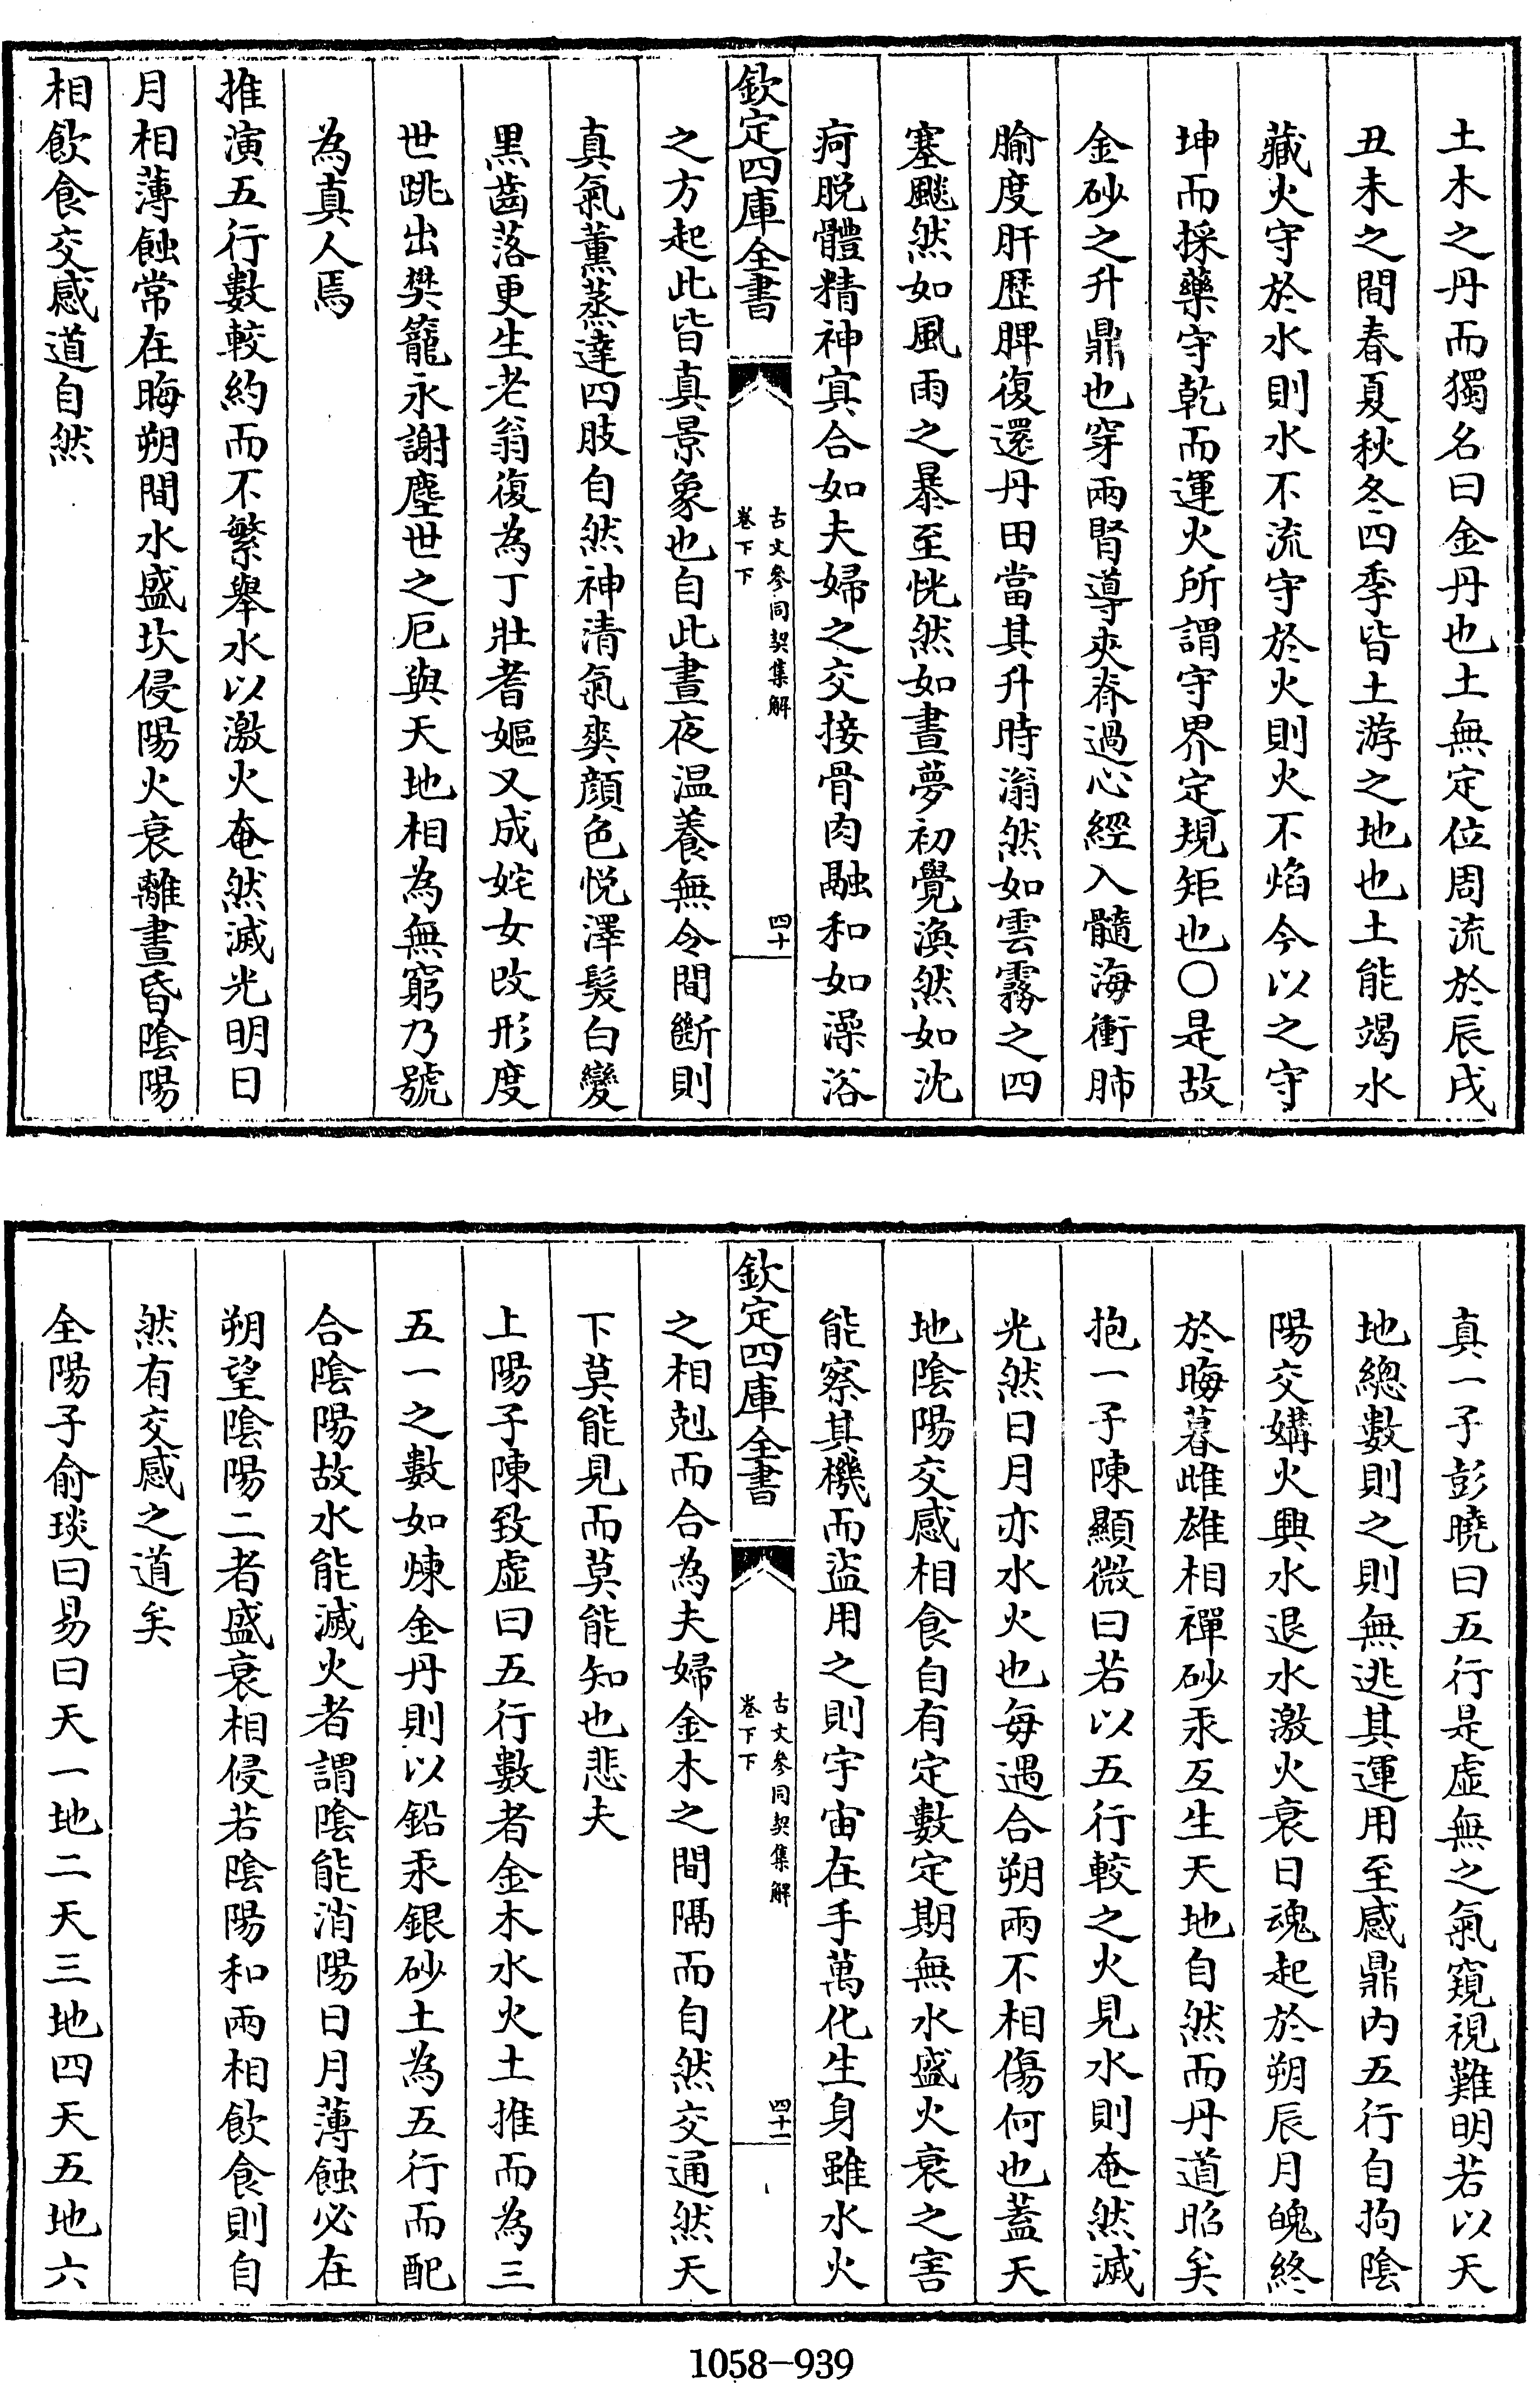 土木之丹而獨名曰金丹也土無定位周流於辰戌
丑未之間春夏秋冬四季皆土游之地也土能竭水
藏火守於水則水不流守於火則火不焰今以之守
坤而採藥守乾而運火所謂守界定規矩也○是故
金砂之升鼎也穿兩腎導夾脊過心經入髓海衝肺
腧度肝歴脾復還丹田當其升時滃然如雲霧之四
塞颷然如風雨之暴至恍然如晝夢初覺渙然如沈
疴脱體精神㝠合如夫婦之交接骨肉融和如澡浴
欽定四庫全書
古文參同契集解
卷下下
四十
之方起此皆真景象也自此晝夜温養無令間斷則
真氣薰蒸達四肢自然神清氣爽顔色悦澤髮白變
黒齒落更生老翁復為丁壯耆嫗又成姹女改形度
世跳出樊籠永謝塵世之厄與天地相為無窮乃號
為真人焉
推演五行數較約而不繁舉水以激火奄然滅光明日
月相薄蝕常在晦朔間水盛坎侵陽火衰離晝昏陰陽
相飲食交感道自然
真一子彭曉曰五行是虚無之氣窺視難明若以天
地總數則之則無逃其運用至感鼎内五行自拘陰
陽交媾火興水退水激火衰日魂起於朔辰月魄終
於晦暮雌雄相禪砂汞互生天地自然而丹道昭矣
抱一子陳顯微曰若以五行較之火見水則奄然滅
光然日月亦水火也每遇合朔兩不相傷何也蓋天
地陰陽交感相食自有定數定期無水盛火衰之害
能察其機而盗用之則宇宙在手萬化生身雖水火
欽定四庫全書
古文參同契集解
卷下下
四十一
之相剋而合為夫婦金木之間隔而自然交通然天
下莫能見而莫能知也悲夫
上陽子陳致虚曰五行數者金木水火土推而為三
五一之數如煉金丹則以鉛汞銀砂土為五行而配
合陰陽故水能滅火者謂陰能消陽日月薄蝕必在
朔望陰陽二者盛衰相侵若陰陽和兩相飲食則自
然有交感之道矣
全陽子俞琰曰易曰天一地二天三地四天五地六
1058-939